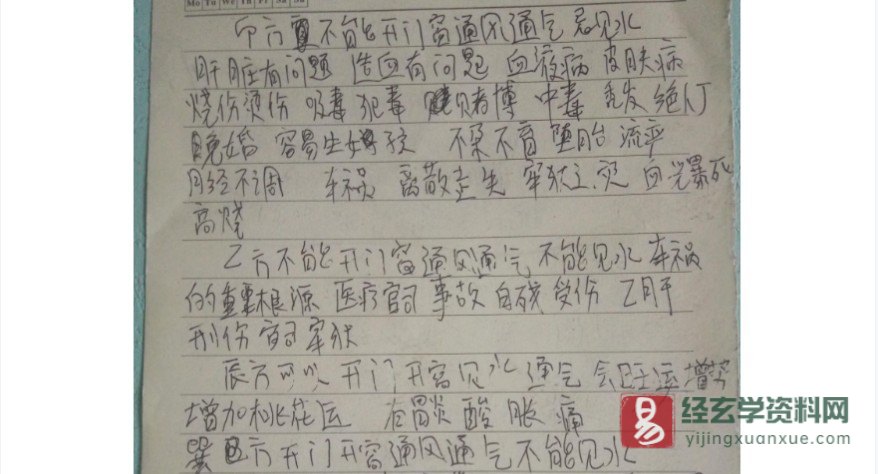 Mo Tu We Th Fr Sa Su
卯方不能开门窗通风通气忌见水
肝脏有问题 造血有问题 血液病 皮肤病
烧伤烫伤 吸毒 犯毒 赌博 中毒 秃发 绝人丁
晚婚 容易生女孩 不孕不育 堕胎 流产
月经不调 车祸 离散走失 牢狱之灾 血光暴死
高烧
乙方不能开门窗通风通气 不能见水 车祸
的重要根源 医疗官司 事故 自残 受伤 乙肝
刑伤 官司 牢狱
辰方可以开门开窗见水 通气 会旺运增势
增加桃花运 有胃炎 酸 胀 痛
巽方开门开窗通风通气不能见水
易 经玄学资料网
yijingxuanxue.com